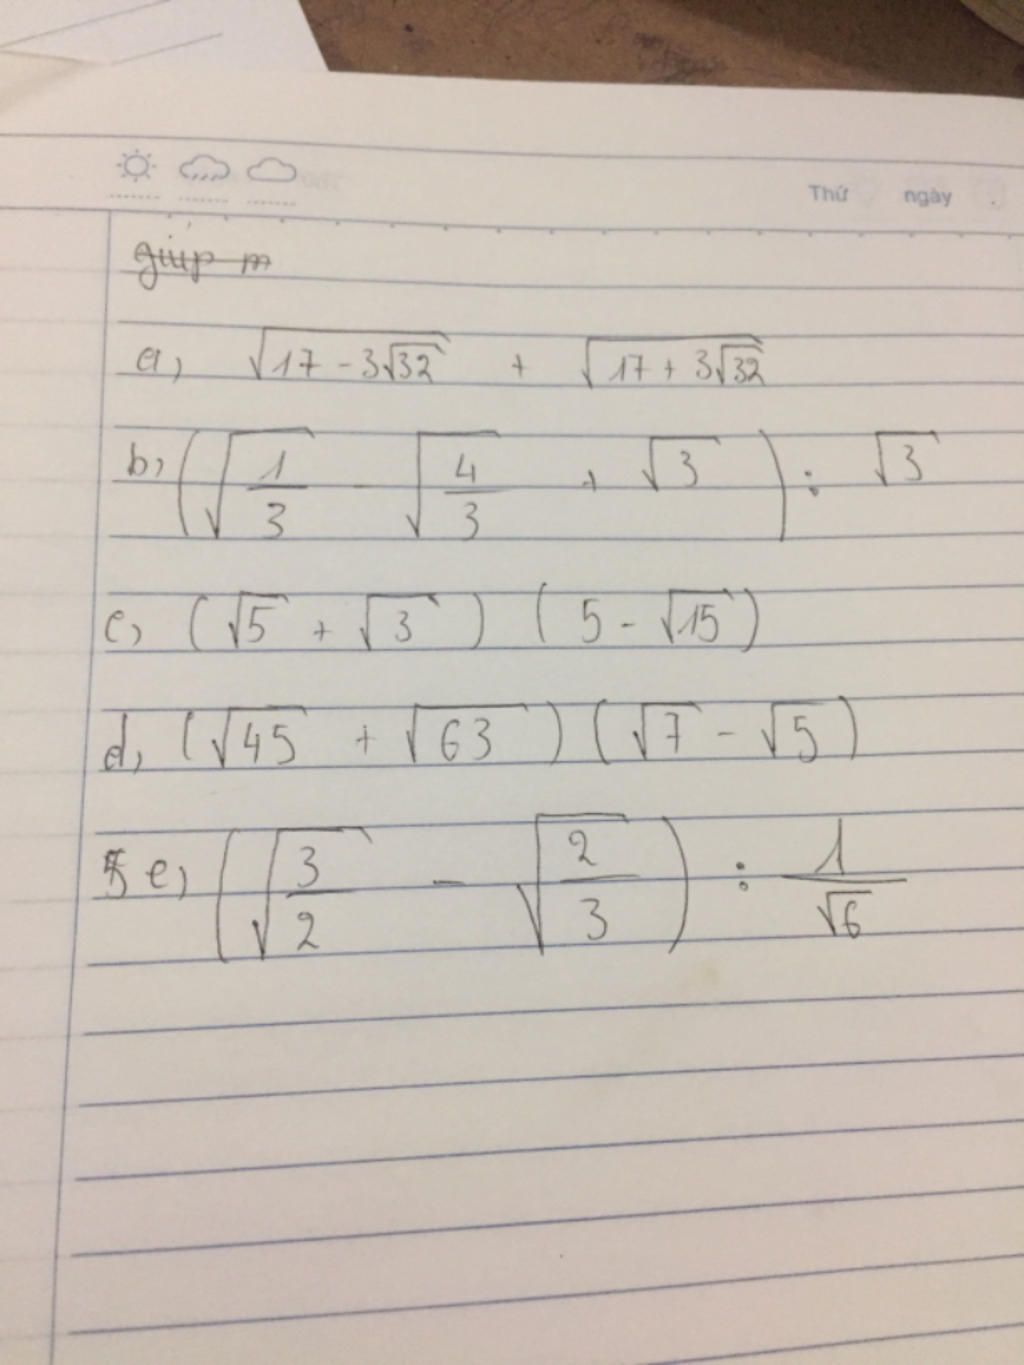 Thứ ngày
giúp m
a, √(17 - 3√32) + √(17 + 3√32)
b, (√(1/3) - √(4/3) + √3) : √3
c, (√5 + √3) (5 - √15)
d, (√45 + √63) (√7 - √5)
e, (√(3/2) - √(2/3)) : 1/√6